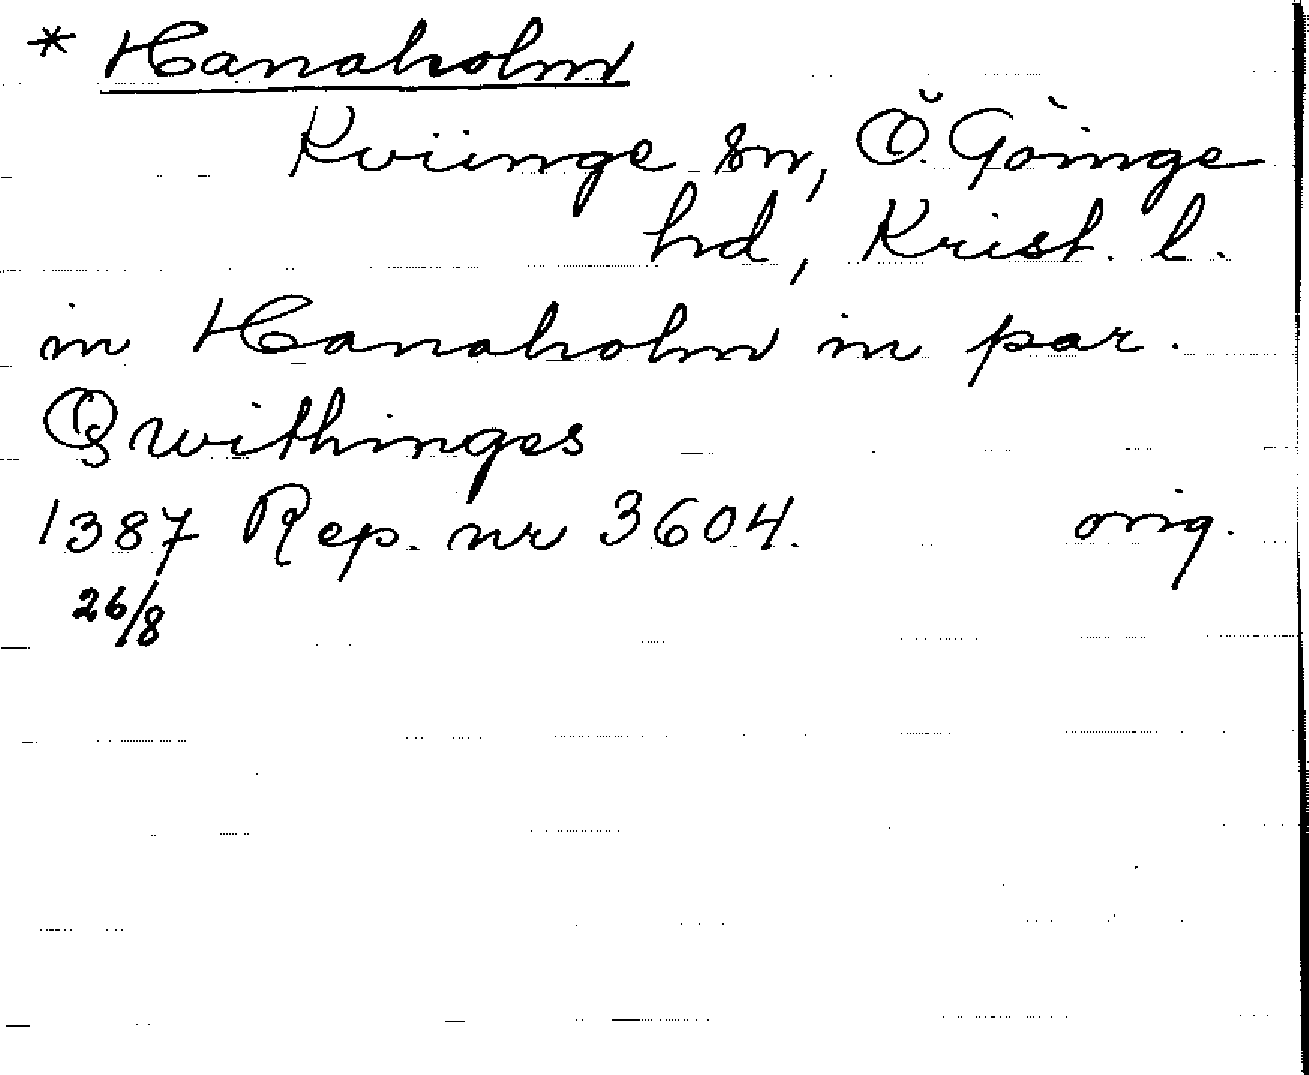 * Hanaholm
Kviinge sn, Ö. Göinge
hd, Krist. l.
in Hanaholm in par.
Qwithinges
1387 Rep. nr 3604. orig.
26/8